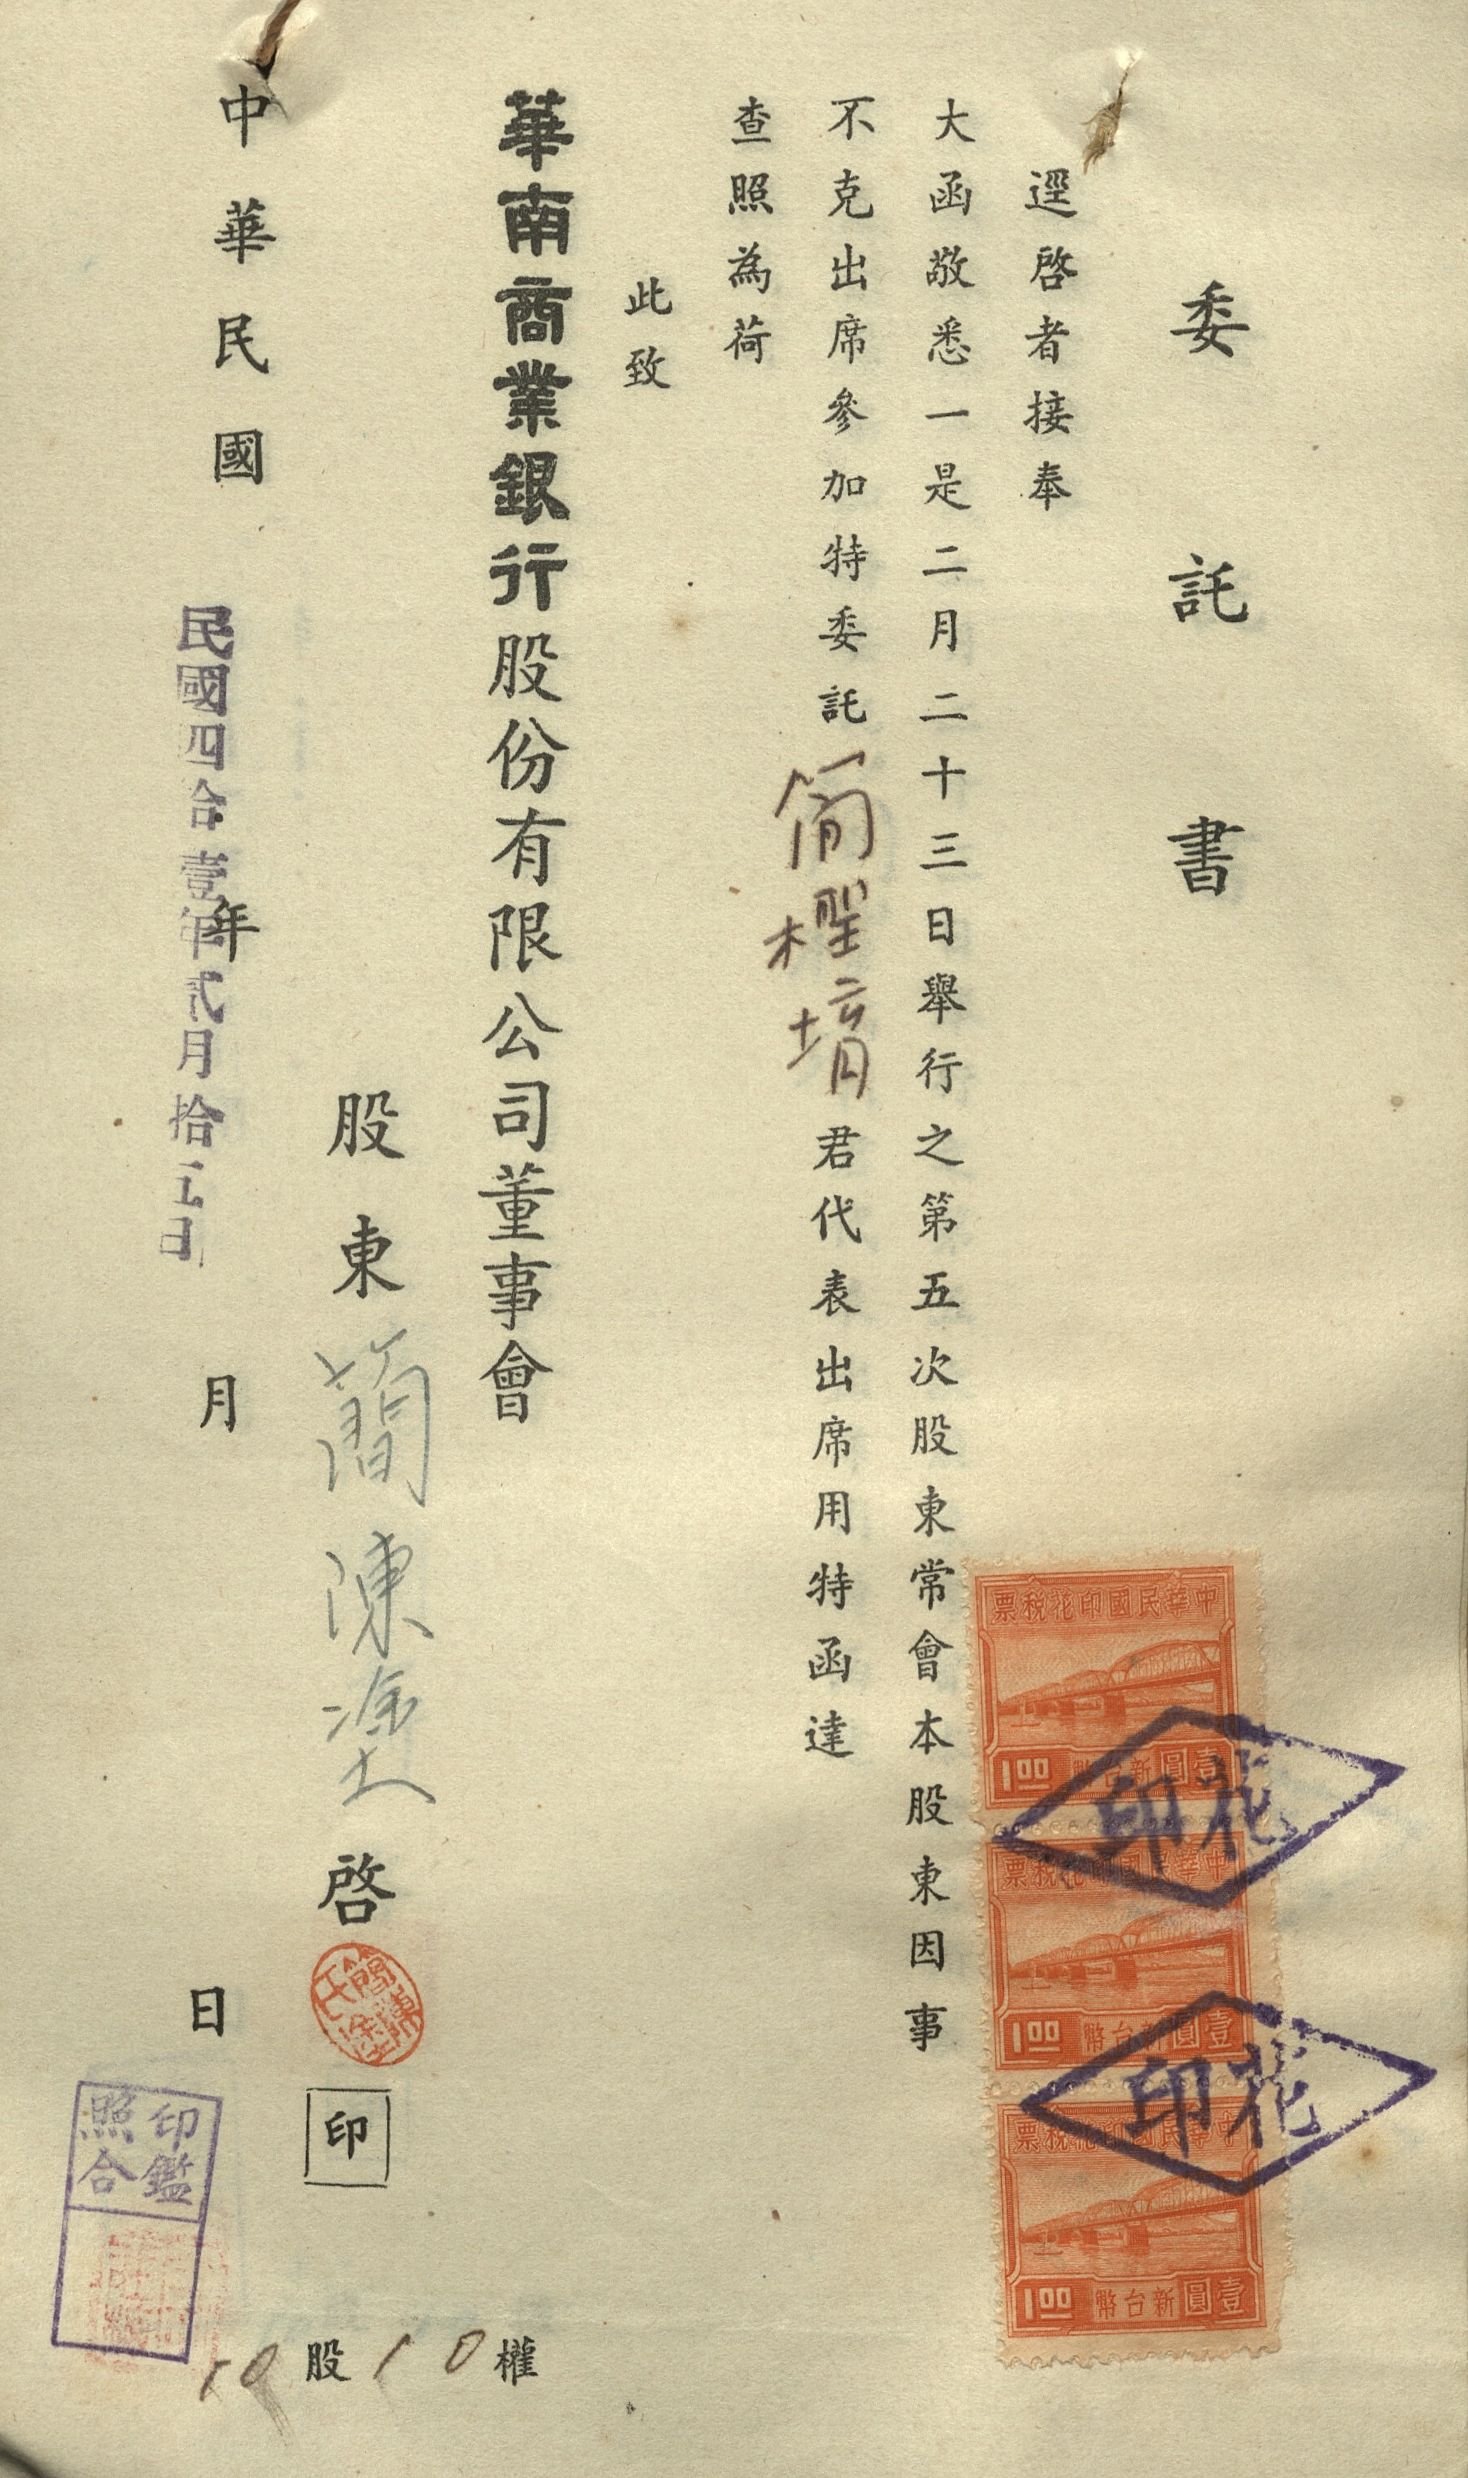 委託書
逕啓者接奉
大函敬悉一是二月二十三日舉行之第五次股東常會本股東因事
不克出席參加特委託簡檉堉君代表出席用特函達
查照為荷
此致
華南商業銀行股份有限公司董事會
股東簡陳塗啓
印
10股10權
中華民國 年 月 日
民國四拾壹年貳月拾五日
印鑑
照合
票稅花印國民華中
1.00 幣台新圓壹
花印
票稅花印國民華中
1.00 幣台新圓壹
花印
票稅花印國民華中
1.00 幣台新圓壹